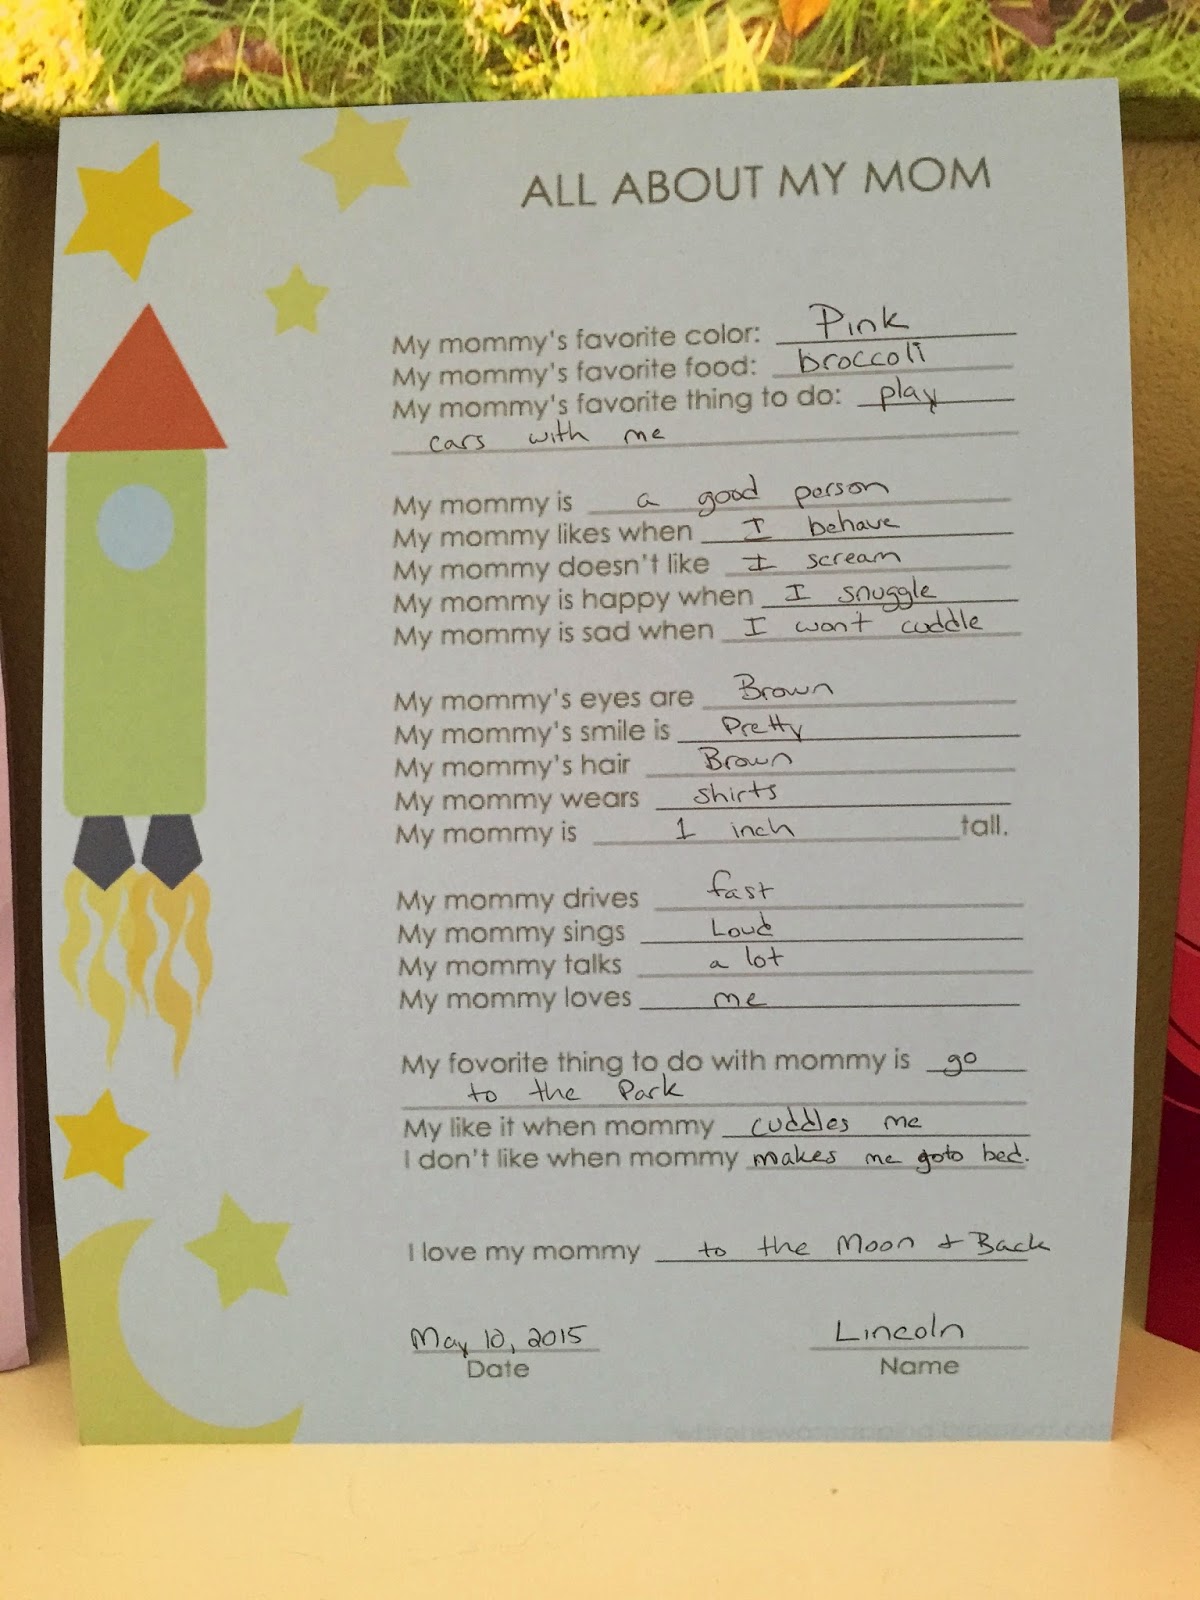 ALL ABOUT MY MOM
My mommy's favorite color: Pink
My mommy's favorite food: broccoli
My mommy's favorite thing to do: play
cars with me
My mommy is a good person
My mommy likes when I behave
My mommy doesn't like I scream
My mommy is happy when I snuggle
My mommy is sad when I won't cuddle
My mommy's eyes are Brown
My mommy's smile is Pretty
My mommy's hair Brown
My mommy wears shirts
My mommy is 1 inch tall.
My mommy drives fast
My mommy sings Loud
My mommy talks a lot
My mommy loves me
My fovorite thing to do with mommy is go
to the Park
My like it when mommy cuddles me
I don't like when mommy makes me goto bed.
I love my mommy to the Moon + Back
May 10, 2015 Lincoln
Date Name